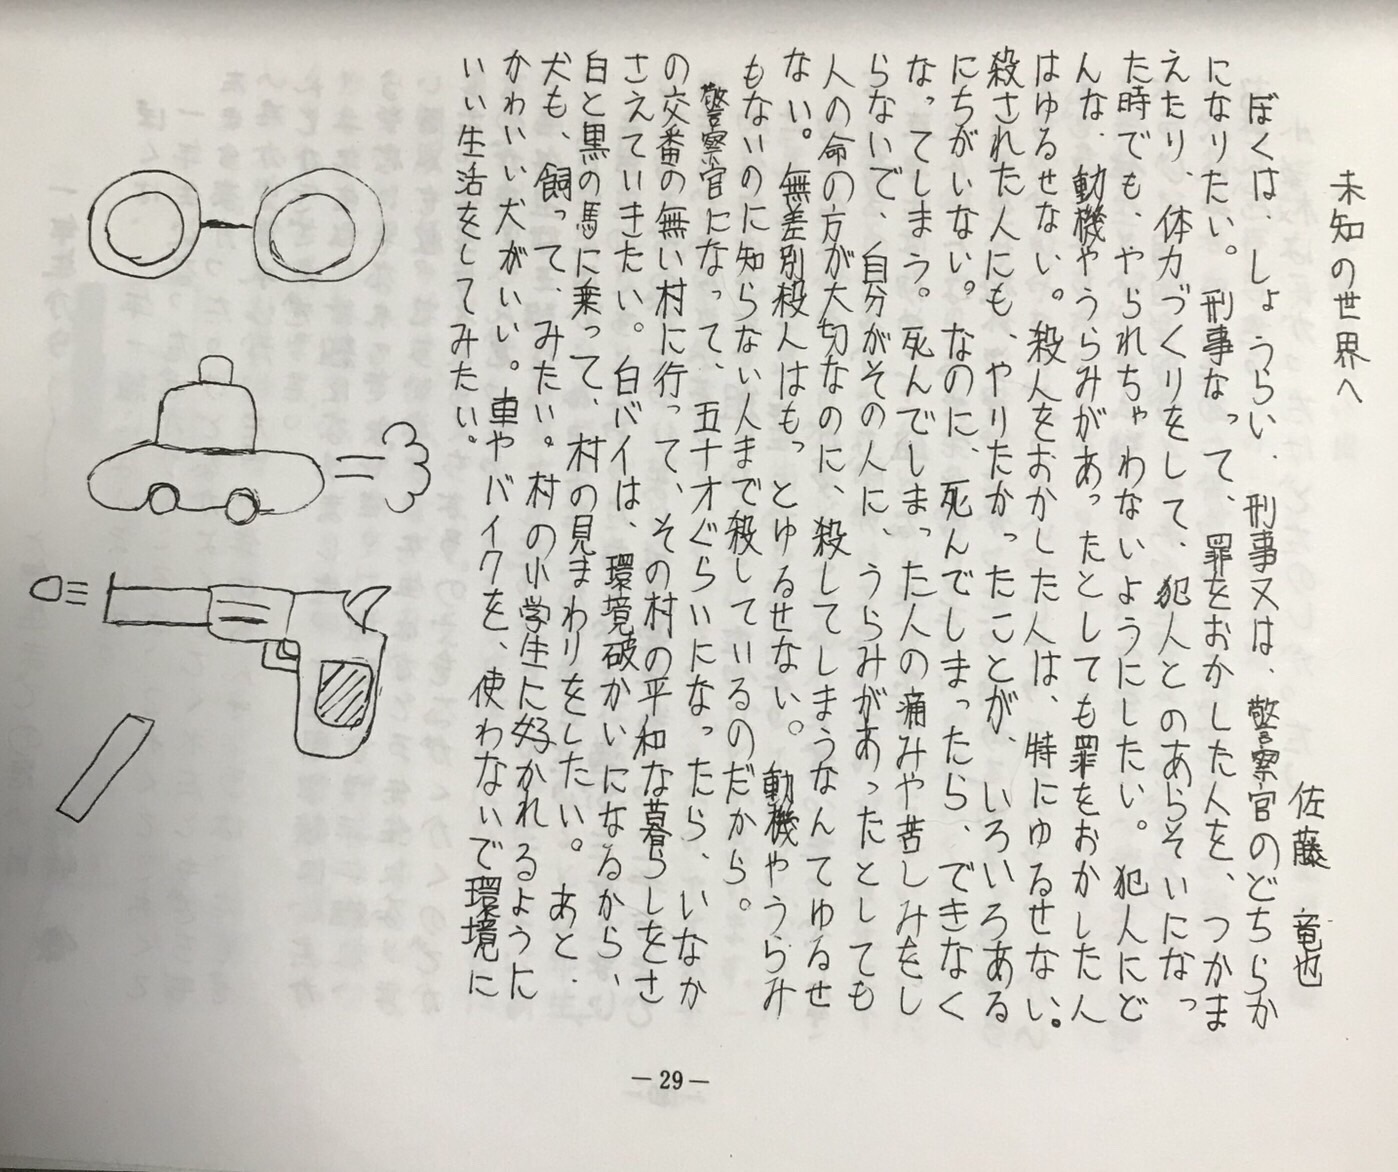 未知の世界へ
佐藤 竜也
ぼくは、しょうらい、刑事又は、警察官のどちらか
になりたい。刑事なって、罪をおかした人を、つかま
えたり、体力づくりをして、犯人とのあらそいになっ
た時でも、やられちゃわないようにしたい。犯人にど
んな、動機やうらみがあったとしても罪をおかした人
はゆるせない。殺人をおかした人は、特にゆるせない。
殺された人にも、やりたかったことが、いろいろある
にちがいない。なのに、死んでしまったら、できなく
なってしまう。死んでしまった人の痛みや苦しみをし
らないで、自分がその人に、うらみがあったとしても
人の命の方が大切なのに、殺してしまうなんてゆるせ
ない。無差別殺人はもっとゆるせない。動機やうらみ
もないのに知らない人まで殺しているのだから。
警察官になって、五十才ぐらいになったら、いなか
の交番の無い村に行って、その村の平和な暮らしをさ
さえていきたい。白バイは、環境破かいになるから、
白と黒の馬に乗って、村の見まわりをしたい。あと、
犬も、飼って、みたい。村の小学生に好かれるように
かわいい犬がいい。車やバイクを、使わないで環境に
いい生活をしてみたい。
—29—